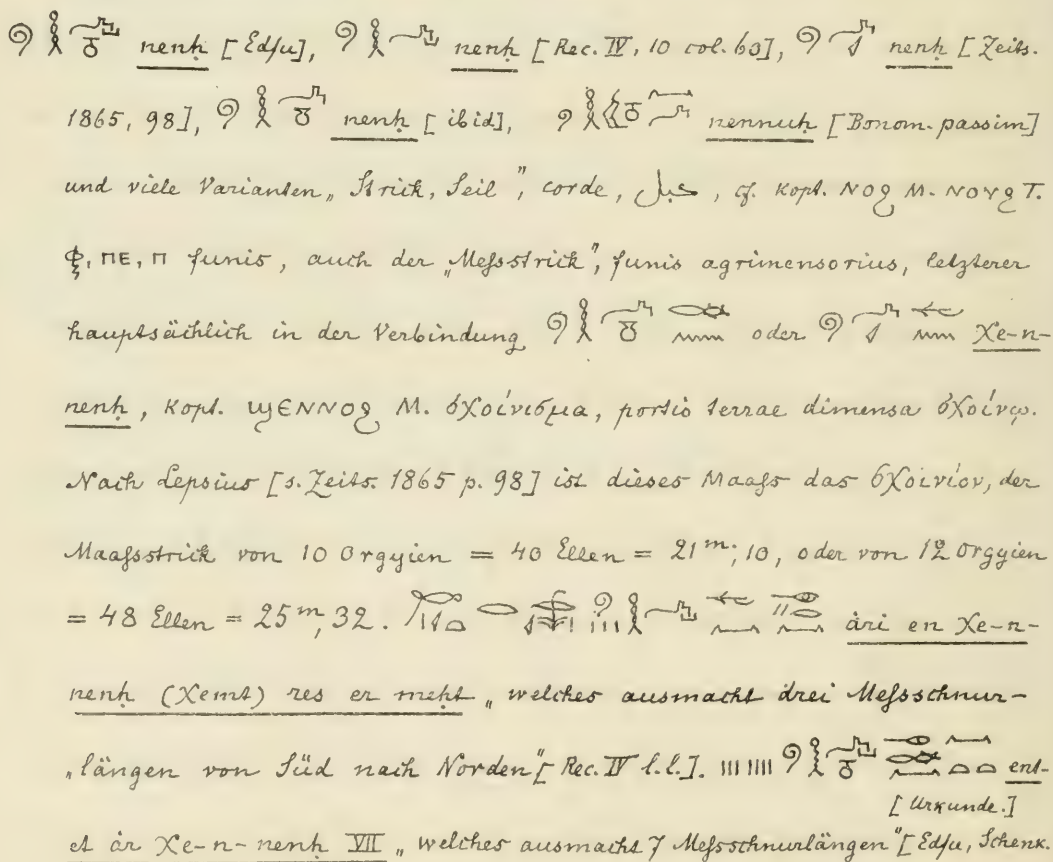 nenḥ [Edfu], nenḥ [Rec. IV, 10 col. 63], nenḥ [Zeits.
1865, 98], nenḥ [ibid], nennuḥ [Bonom. passim]
und viele Varianten „Strick, Seil", corde, حبل, cf. Kopt. ⲛⲟϩ M. ⲛⲟⲩϩ T.
ⲡⲉ, ⲡ funis, auch der „Meſsstrick", funis agrimensorius, letzterer
hauptsächlich in der Verbindung oder χe-n-
nenḥ, Kopt. ϣⲉⲛⲛⲟϩ M. σχοίνισμα, portio terrae dimensa σχοίνῳ.
Nach Lepsius [s. Zeits. 1865 p. 98] ist dieses Maaſs das σχοινίον, der
Maaſsstrick von 10 Orgyien = 40 Ellen = 21ᵐ,10, oder von 12 Orgyien
= 48 Ellen = 25ᵐ,32. ȧri en χe-n-
nenḥ (χemt) res er meḥt „welches ausmacht drei Meſsschnur-
„längen von Süd nach Norden" [Rec. IV l.l.]. ent-
[Urkunde.]
et ȧr χe-n-nenḥ VII „welches ausmacht 7 Meſsschnurlängen" [Edfu, Schenk.